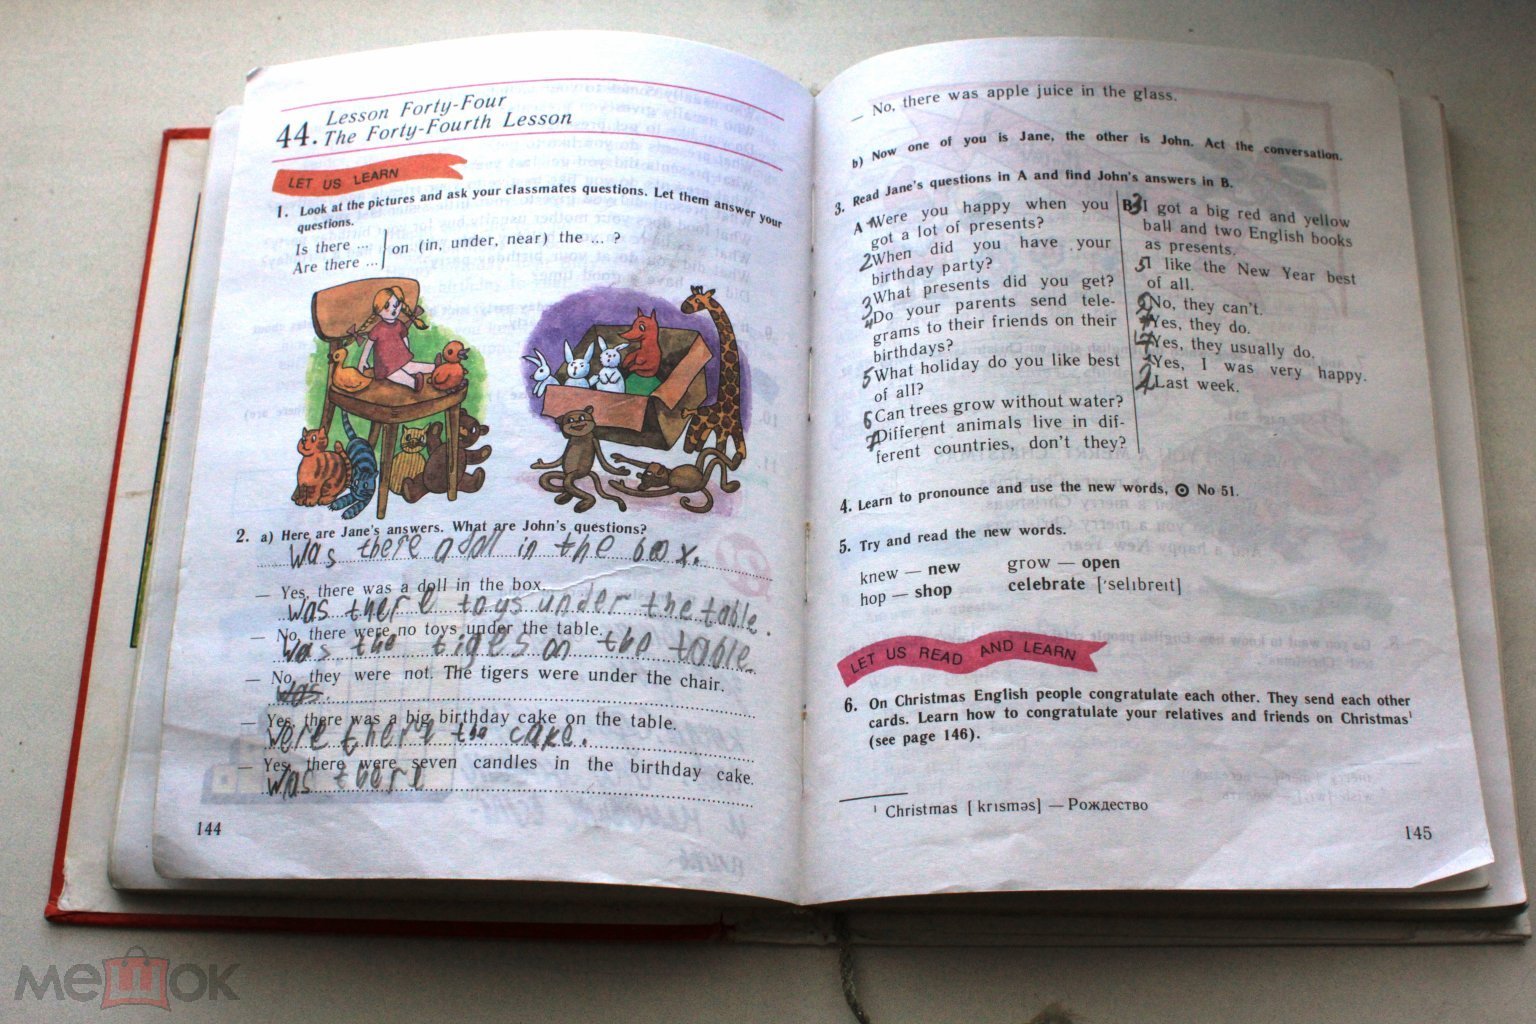 Lesson Forty-Four
44. The Forty-Fourth Lesson
LET US LEARN
1. Look at the pictures and ask your classmates questions. Let them answer your
questions.
Is there ...
Are there ...
on (in, under, near) the ... ?
2. a) Here are Jane's answers. What are John's questions?
Was there a doll in the box.
— Yes, there was a doll in the box.
Was there toys under the table.
— No, there were no toys under the table.
Was the tiges on the table
— No, they were not. The tigers were under the chair.
was.
— Yes, there was a big birthday cake on the table.
Were there the cake.
— Yes, there were seven candles in the birthday cake.
Was there
144
— No, there was apple juice in the glass.
b) Now one of you is Jane, the other is John. Act the conversation.
3. Read Jane's questions in A and find John's answers in B.
A Were you happy when you
got a lot of presents?
2 When did you have your
birthday party?
3 What presents did you get?
4 Do your parents send tele-
grams to their friends on their
birthdays?
5 What holiday do you like best
of all?
6 Can trees grow without water?
7 Different animals live in dif-
ferent countries, don't they?
B 3 I got a big red and yellow
ball and two English books
as presents.
5 I like the New Year best
of all.
No, they can't.
Yes, they do.
Yes, they usually do.
Yes, I was very happy.
2 Last week.
4. Learn to pronounce and use the new words, No 51.
5. Try and read the new words.
knew — new grow — open
hop — shop celebrate ['selıbreıt]
LET US READ AND LEARN
6. On Christmas English people congratulate each other. They send each other
cards. Learn how to congratulate your relatives and friends on Christmas¹
(see page 146).
¹ Christmas [ krısməs] — Рождество
145
мешок